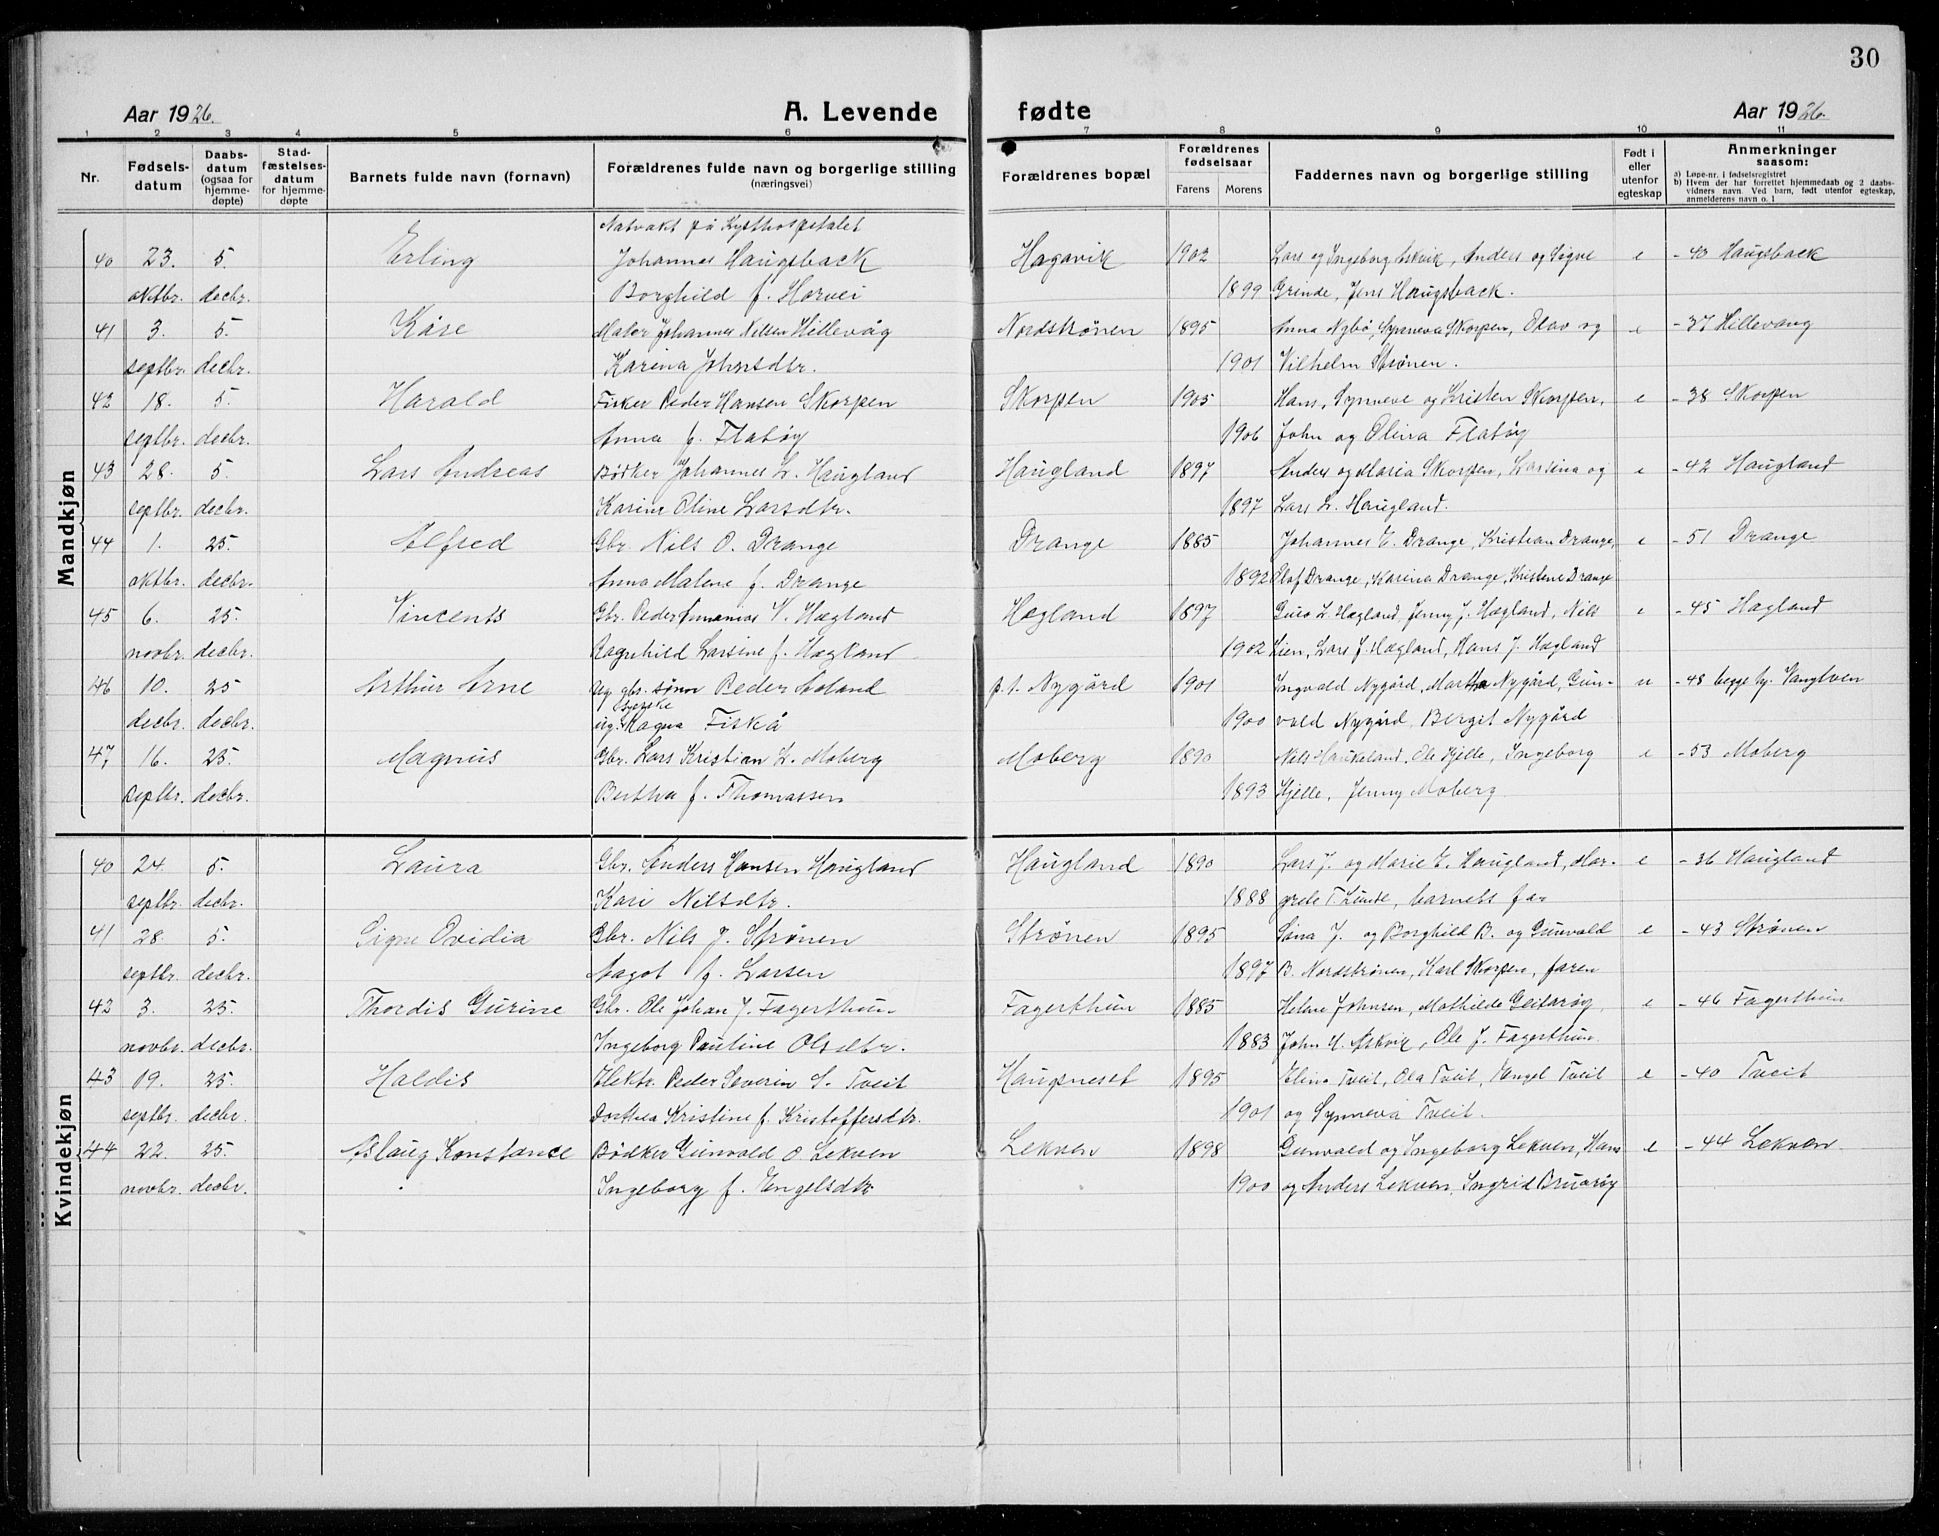 30
Aar 1926. A. Levende fødte Aar 1926.
1 2 3 4 5 6 7 8 9 10 11
Nr. Fødsels-datum Daabs-datum (ogsaa for hjemme-døpte) Stad-fæstelses-datum for hjemme-døpte Barnets fulde navn (fornavn) Forældrenes fulde navn og borgerlige stilling (næringsvei) Forældrenes bopæl Forældrenes fødselsaar Farens Morens Faddernes navn og borgerlige stilling Født i eller utenfor egteskap Anmerkninger saasom: a) Løpe-nr. i fødselsregistret b) Hvem der har forrettet hjemmedaab og 2 daabs-vidners navn. Ved barn, født utenfor egteskap, anmelderens navn o. l
Mandkjøn
Natvakt på Kysthospitalet
40 23. 5. Erling Johannes Haugsback Hagavik 1902 Lars og Ingeborg Askvik, Anders og Signe e - 40 Haugsback
oktbr. decbr. Borghild f. Horvei 1899 Grinde, Jens Haugsback.
41 3. 5. Kåre Maler Johannes Nilsen Hillevåg Nordstrønen 1895 Anna Nybø, Synneva Skorpen, Olav og e - 37 Hillevang
septbr. decbr. Karina Johnsdtr. 1901 Vilhelm Strønen.
42 18. 5. Harald Fisker Peder Hansen Skorpen Skorpen 1905 Hans, Synneve og Kristen Skorpen, e - 38 Skorpen
septbr. decbr. Anna f. Flatøy 1906 John og Olina Flatøy
43 28. 5. Lars Andreas Bødker Johannes L. Haugland Haugland 1897 Anders og Maria Skorpen, Larsina og e - 42 Haugland
septbr. decbr. Karine Oline Larsdtr. 1897 Lars L. Haugland.
44 1. 25. Alfred Gbr. Nils O. Drange Drange 1885 Johannes E. Drange, Kristian Drange, e - 51 Drange
oktbr. decbr. Anna Malene f. Drange 1892 Olof Drange, Karina Drange, Kristene Drange
45 6. 25. Vincents Gbr. Peder Ananias V. Hægland Hægland 1897 L. Hægland, Jenny J. Hægland, Nils e - 45 Hagland
novbr. decbr. Ragnhild Larsine f. Hægland 1902 Lien, Lars J. Hægland, Hans J. Hægland
46 10. 25 Arthur Arne gbr. sønn Peder p. t. Nygård 1901 Ingvald Nygård, Martha Nygård, Gun- u - 48 begge
decbr. decbr. Magna Fiskå 1900 vald Nygård, Bergit Nygård
47 16. 25. Magnus Gbr. Lars Kristian L. Moberg Moberg 1890 Nils Haukeland, Ole Hjelle, Ingeborg e - 53 Moberg
septbr. decbr. Bertha f. Thomassen 1893 Hjelle, Jenny Moberg
Kvindekjøn
40 24. 5. Laura Gbr. Anders Hansen Haugland Haugland 1890 Lars J. og Marie E. Haugland, Mar- e - 36 Haugland
septbr. decbr. Kari Nilsdtr. 1888 grete T. Lunde, barnets far
41 28. 5. Signe Ovidia Gbr. Nils J. Strønen Strønen 1895 Sina J. og Borghild B. og Gunvald e - 43 Strønen
septbr. decbr. Aagot f. Larsen 1897 B. Nordstrønen, Karl Skorpen, faren
42 3. 25. Thordis Gurine Gbr. Ole Johan J. Fagerthun Fagerthun 1885 Helene Johnsen, Mathilde Geitarøy, e - 46 Fagerthun
novbr. decbr. Ingeborg Pauline Olsdtr. 1883 John H. Askvik, Ole J. Fagerthun.
43 19. 25. Haldis Elektr. Peder Severin S. Tveit Haugsneset 1895 Elina Tveit, Ola Tveit, Engel Tveit e - 40 Tveit
septbr. decbr. Dorthea Kristine f. Kristoffersdtr. 1901 og Synneva Tveit.
44 22. 25. Aslaug Konstance Bødker Gunvald O. Lekven Lekven 1898 Gunvald og Ingeborg Lekven, Hans e - 44 Lekven
novbr. decbr. Ingeborg f. Engelsdtr 1900 og Anders Lekven, Ingrid Bruarøy